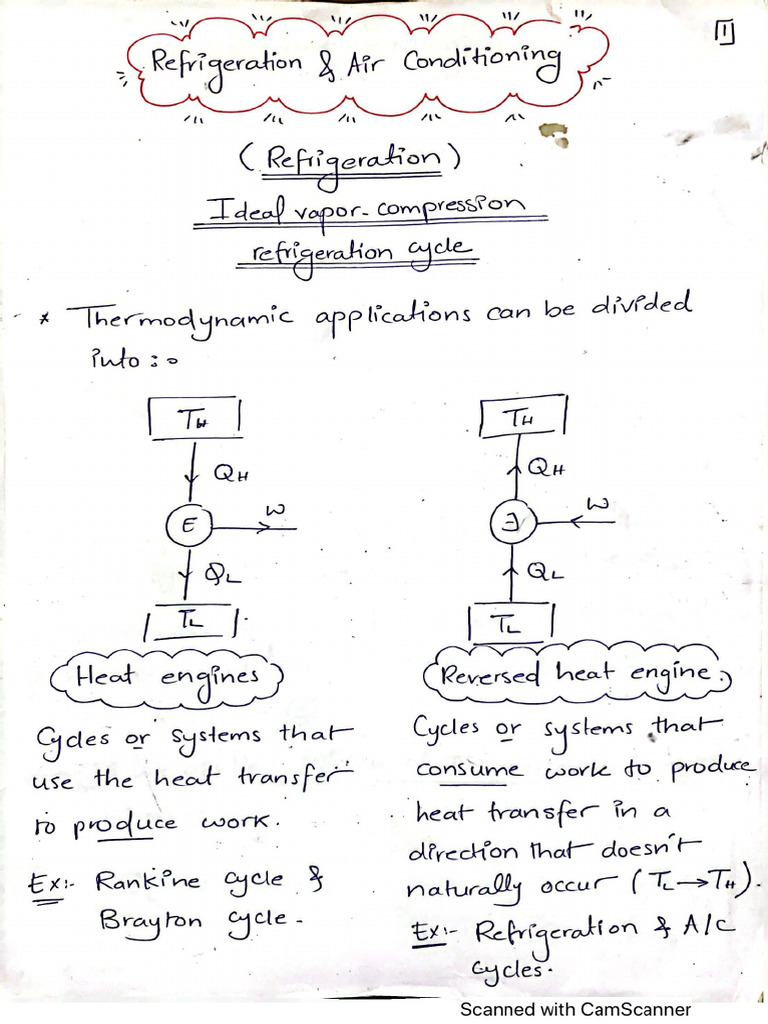 1
Refrigeration & Air Conditioning
(Refrigeration)
Ideal vapor-compression
refrigeration cycle
* Thermodynamic applications can be divided
into:-
TH
QH
E
W
QL
TL
Heat engines
Cycles or systems that
use the heat transfer
to produce work.
Ex:- Rankine cycle &
Brayton cycle.
TH
QH
E
W
QL
TL
Reversed heat engine.
Cycles or systems that
consume work to produce
heat transfer in a
direction that doesn't
naturally occur (TL→TH).
Ex:- Refrigeration & A/C
cycles.
Scanned with CamScanner